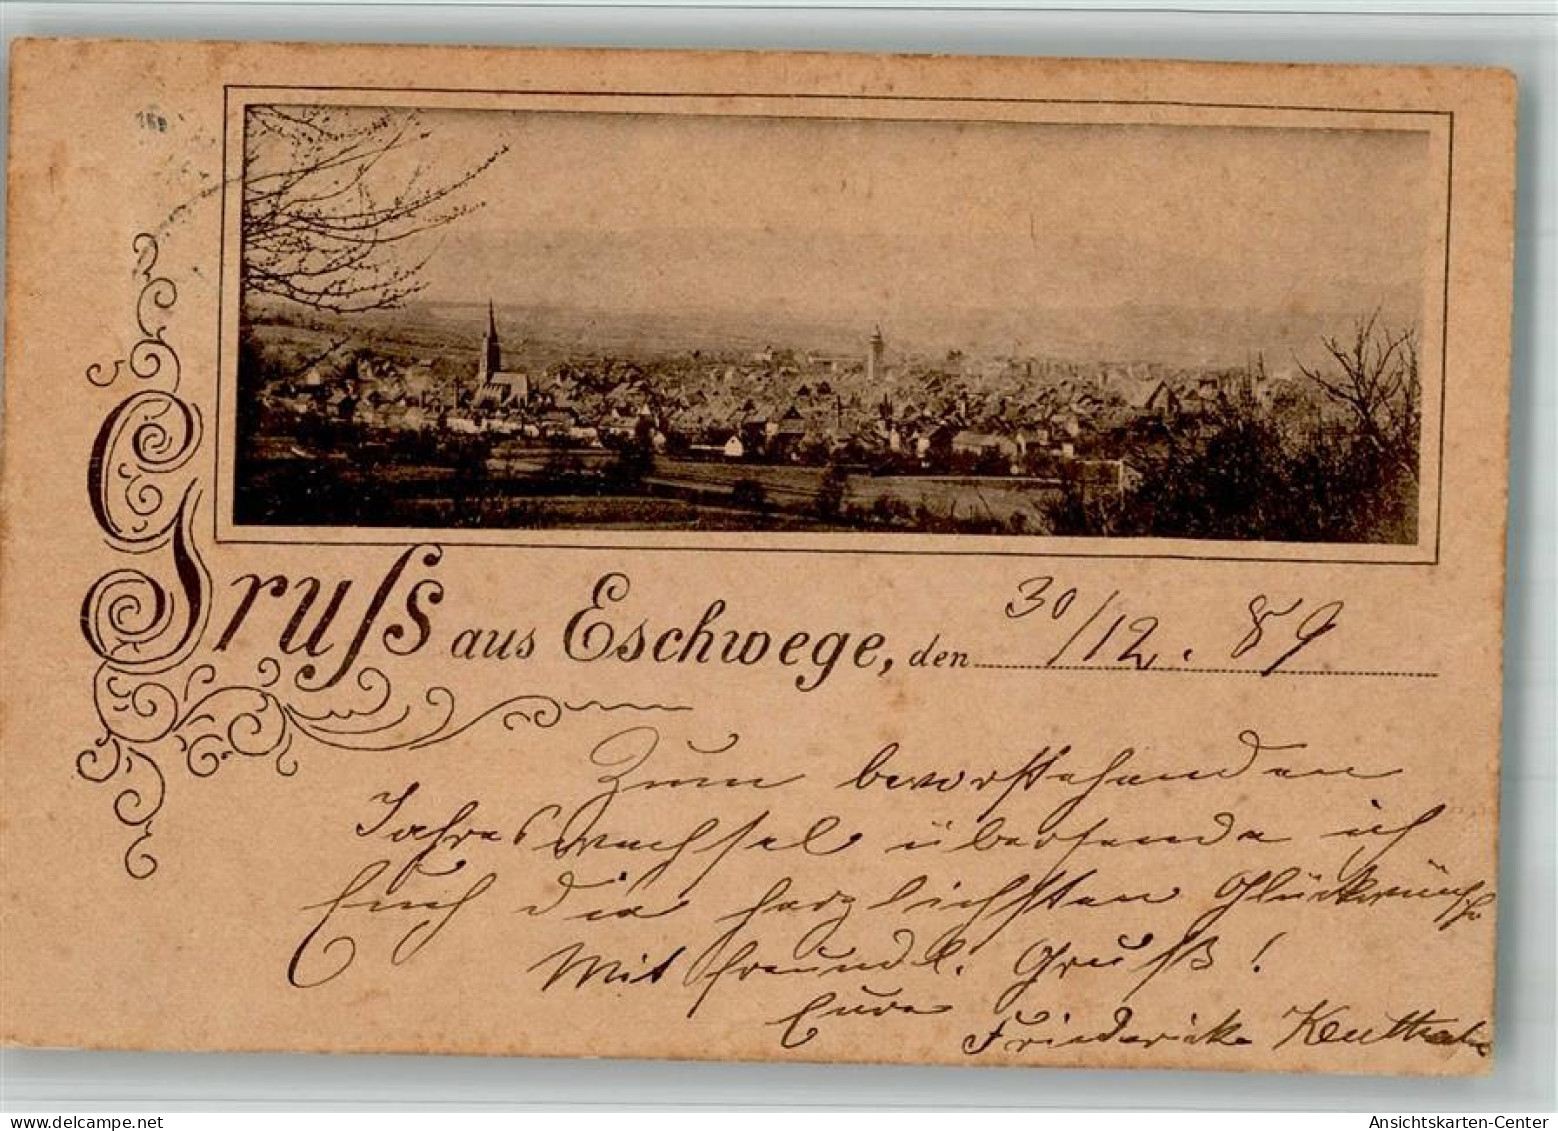 Gruss aus Eschwege, den 30/12. 89
Zum bevorstehenden
Jahreswechsel übersende ich
Euch die herzlichsten Glückwünsche
Mit freundl. Gruß!
Eure
Friedericke
© by oldthing.net
Ansichtskarten-Center